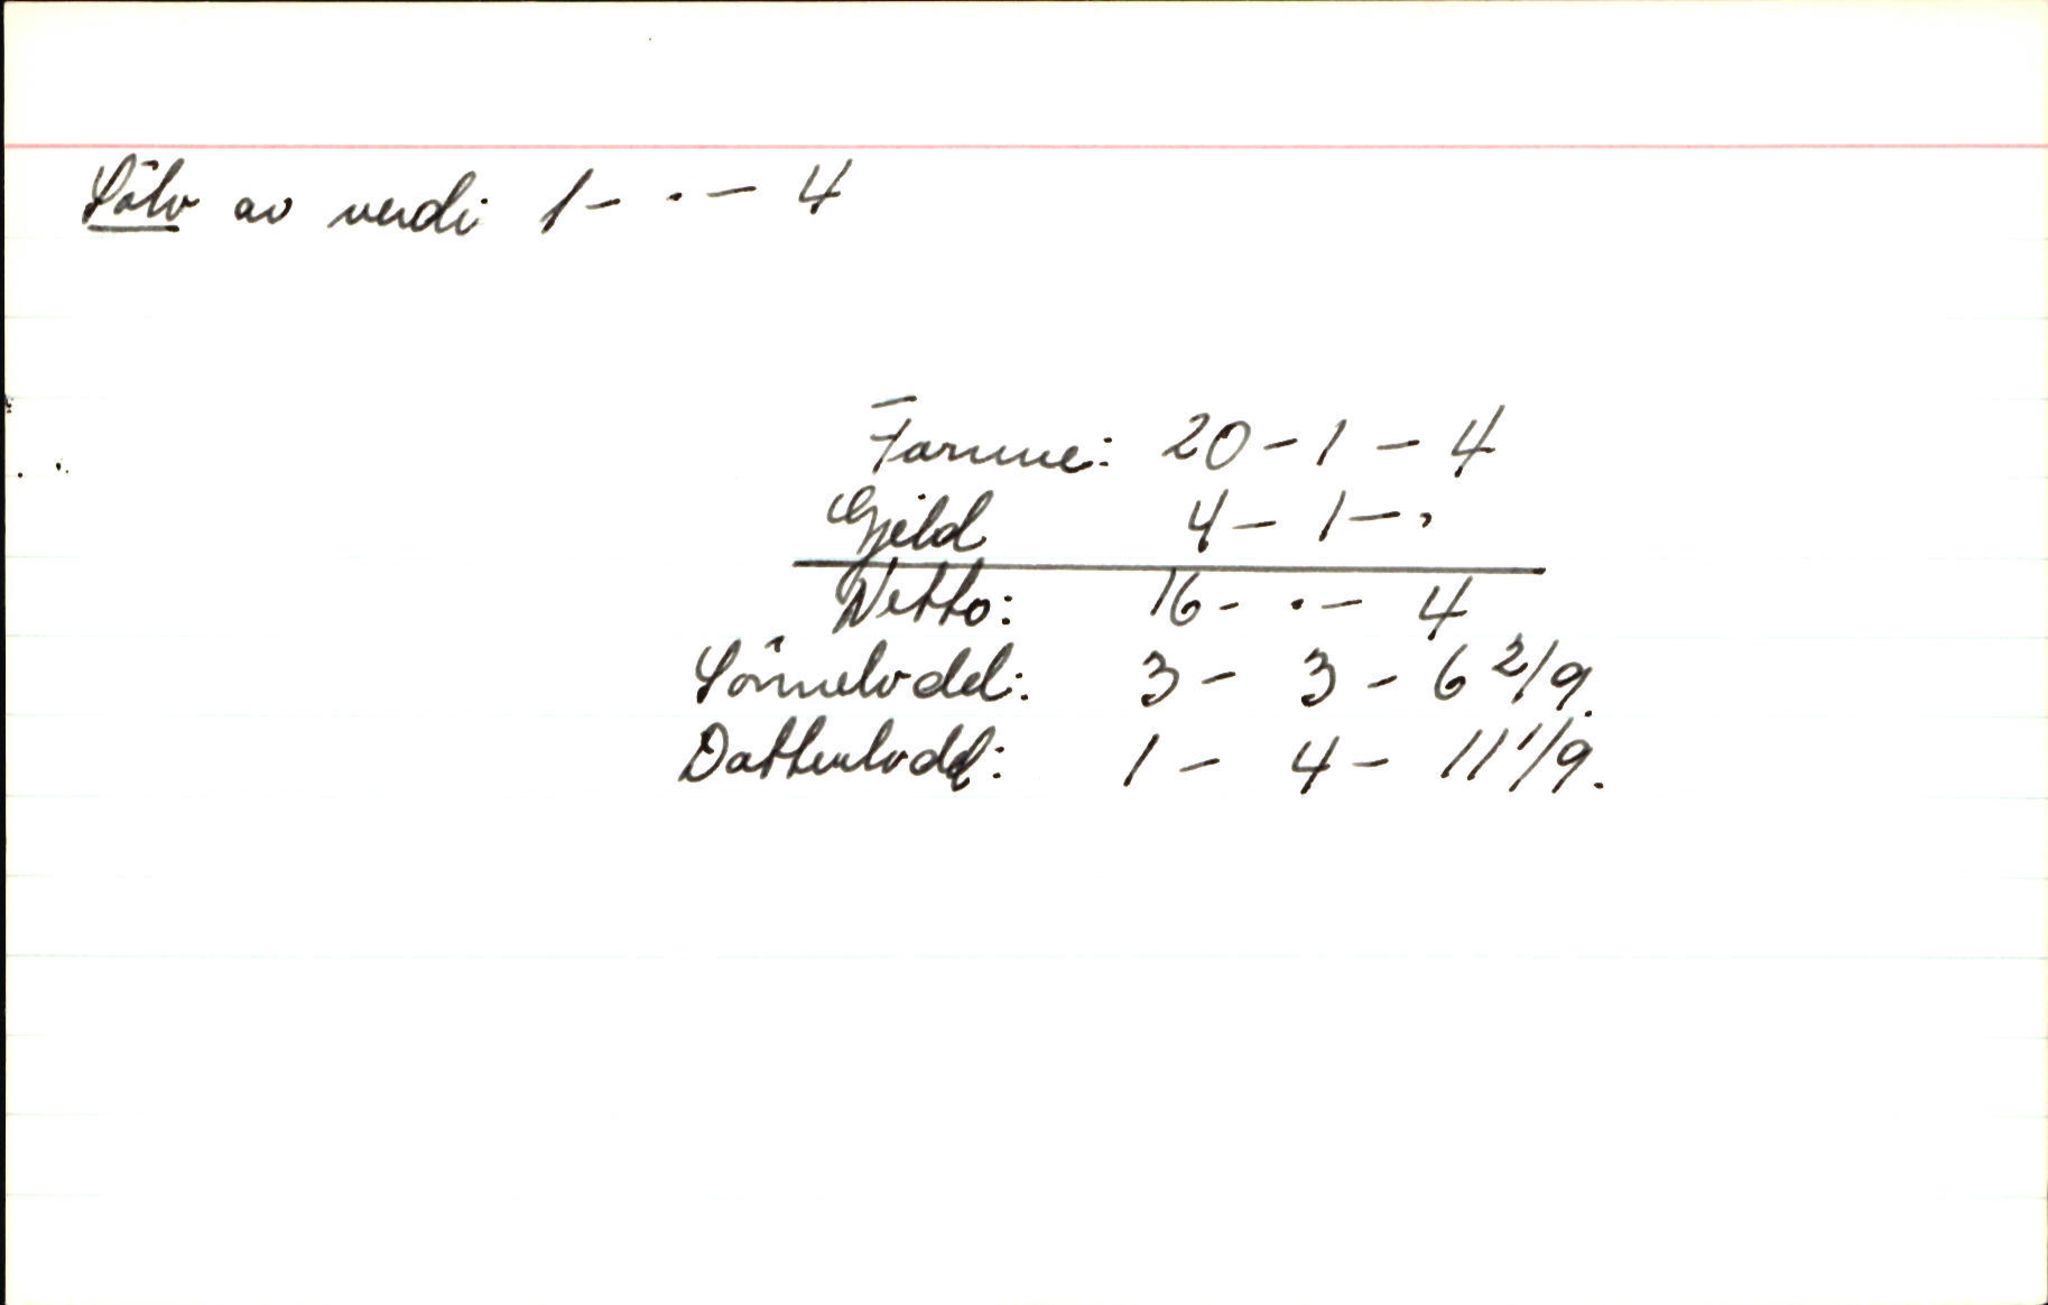 Sölv av verdi 1 - . - 4
Formue: 20 - 1 - 4
Gjeld 4 - 1 - .
Netto: 16 - . - 4
Sönnelodd: 3 - 3 - 6 2/9.
Datterlodd: 1 - 4 - 11 1/9.